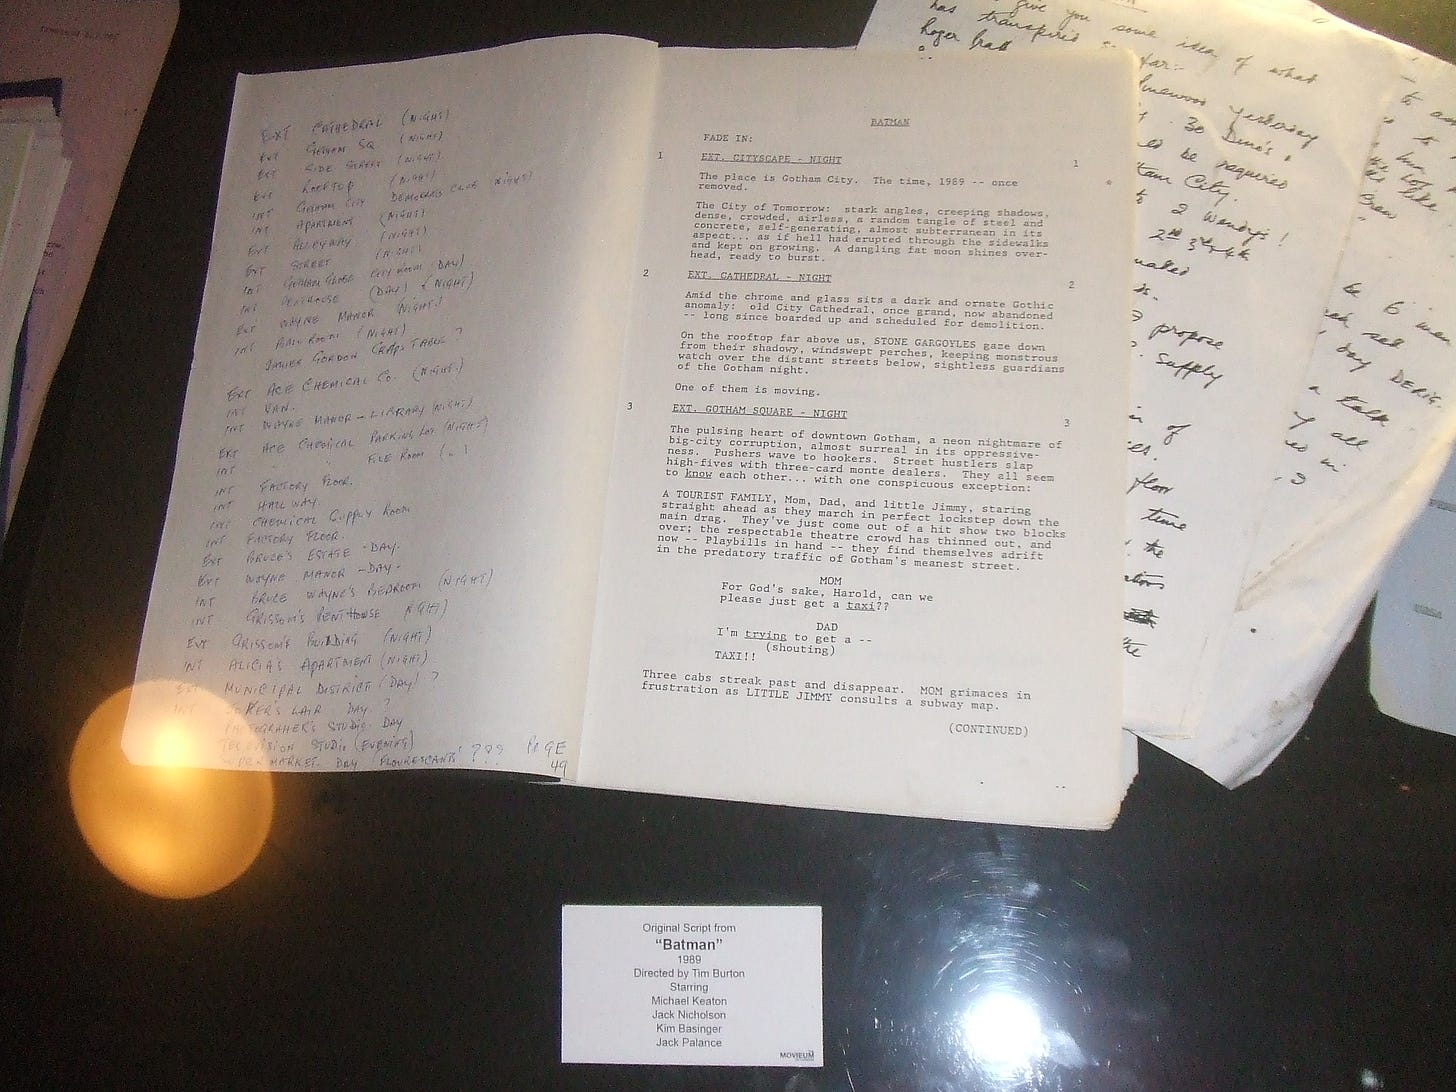 EXT CATHEDRAL (NIGHT)
EXT GOTHAM SQ (NIGHT)
EXT SIDE STREET (NIGHT)
EXT ROOFTOP (NIGHT)
INT GOTHAM CITY DEMOCRATIC CLUB NIGHT)
INT APARTMENT (NIGHT)
EXT ALLEYWAY (NIGHT)
EXT STREET (NIGHT)
INT GOTHAM GLOBE CITY ROOM (DAY)
INT PENTHOUSE (DAY) & NIGHT)
EXT WAYNE MANOR (NIGHT)
INT BALLROOM (NIGHT)
JAMES GORDON CRAPS TABLE?
EXT ACE CHEMICAL CO. (NIGHT)
INT VAN.
INT WAYNE MANOR - LIBRARY (NIGHT)
EXT ACE CHEMICAL PARKING LOT (NIGHT)
INT " " FILE ROOM ( " )
INT FACTORY FLOOR.
INT HALLWAY.
INT CHEMICAL SUPPLY ROOM
INT FACTORY FLOOR.
EXT BRUCE'S ESTATE - DAY.
EXT WAYNE MANOR - DAY -
INT BRUCE WAYNE'S BEDROOM (NIGHT)
INT GRISSOM'S PENTHOUSE NIGHT)
EXT GRISSOM'S BUILDING (NIGHT)
INT ALICIA'S APARTMENT (NIGHT)
EXT MUNICIPAL DISTRICT (DAY) ?
INT JOKER'S LAIR. DAY. ?
PHOTOGRAPHER'S STUDIO. DAY
TELEVISION STUDIO (EVENING)
SUPERMARKET. DAY (FLOURESCANTS' ??? PAGE
49
BATMAN
FADE IN:
1 EXT. CITYSCAPE - NIGHT 1
The place is Gotham City. The time, 1989 -- once *
removed.
The City of Tomorrow: stark angles, creeping shadows,
dense, crowded, airless, a random tangle of steel and
concrete, self-generating, almost subterranean in its
aspect... as if hell had erupted through the sidewalks
and kept on growing. A dangling fat moon shines over-
head, ready to burst.
2 EXT. CATHEDRAL - NIGHT 2
Amid the chrome and glass sits a dark and ornate Gothic
anomaly: old City Cathedral, once grand, now abandoned
-- long since boarded up and scheduled for demolition.
On the rooftop far above us, STONE GARGOYLES gaze down
from their shadowy, windswept perches, keeping monstrous
watch over the distant streets below, sightless guardians
of the Gotham night.
One of them is moving.
3 EXT. GOTHAM SQUARE - NIGHT 3
The pulsing heart of downtown Gotham, a neon nightmare of
big-city corruption, almost surreal in its oppressive-
ness. Pushers wave to hookers. Street hustlers slap
high-fives with three-card monte dealers. They all seem
to know each other... with one conspicuous exception:
A TOURIST FAMILY, Mom, Dad, and little Jimmy, staring
straight ahead as they march in perfect lockstep down the
main drag. They've just come out of a hit show two blocks
over; the respectable theatre crowd has thinned out, and
now -- Playbills in hand -- they find themselves adrift
in the predatory traffic of Gotham's meanest street.
MOM
For God's sake, Harold, can we
please just get a taxi??
DAD
I'm trying to get a --
(shouting)
TAXI!!
Three cabs streak past and disappear. MOM grimaces in
frustration as LITTLE JIMMY consults a subway map.
(CONTINUED)
give you some idea of what
has transpired so far:-
yesterday
30 Dino's,
be required
City.
2 Wendy's!
2nd 3rd & 4th
propose
supply
of
floor
time
the
the
be 6
set
day DERIG.
a talk
all
in
Original Script from
“Batman”
1989
Directed by Tim Burton
Starring
Michael Keaton
Jack Nicholson
Kim Basinger
Jack Palance
MOVIEUM